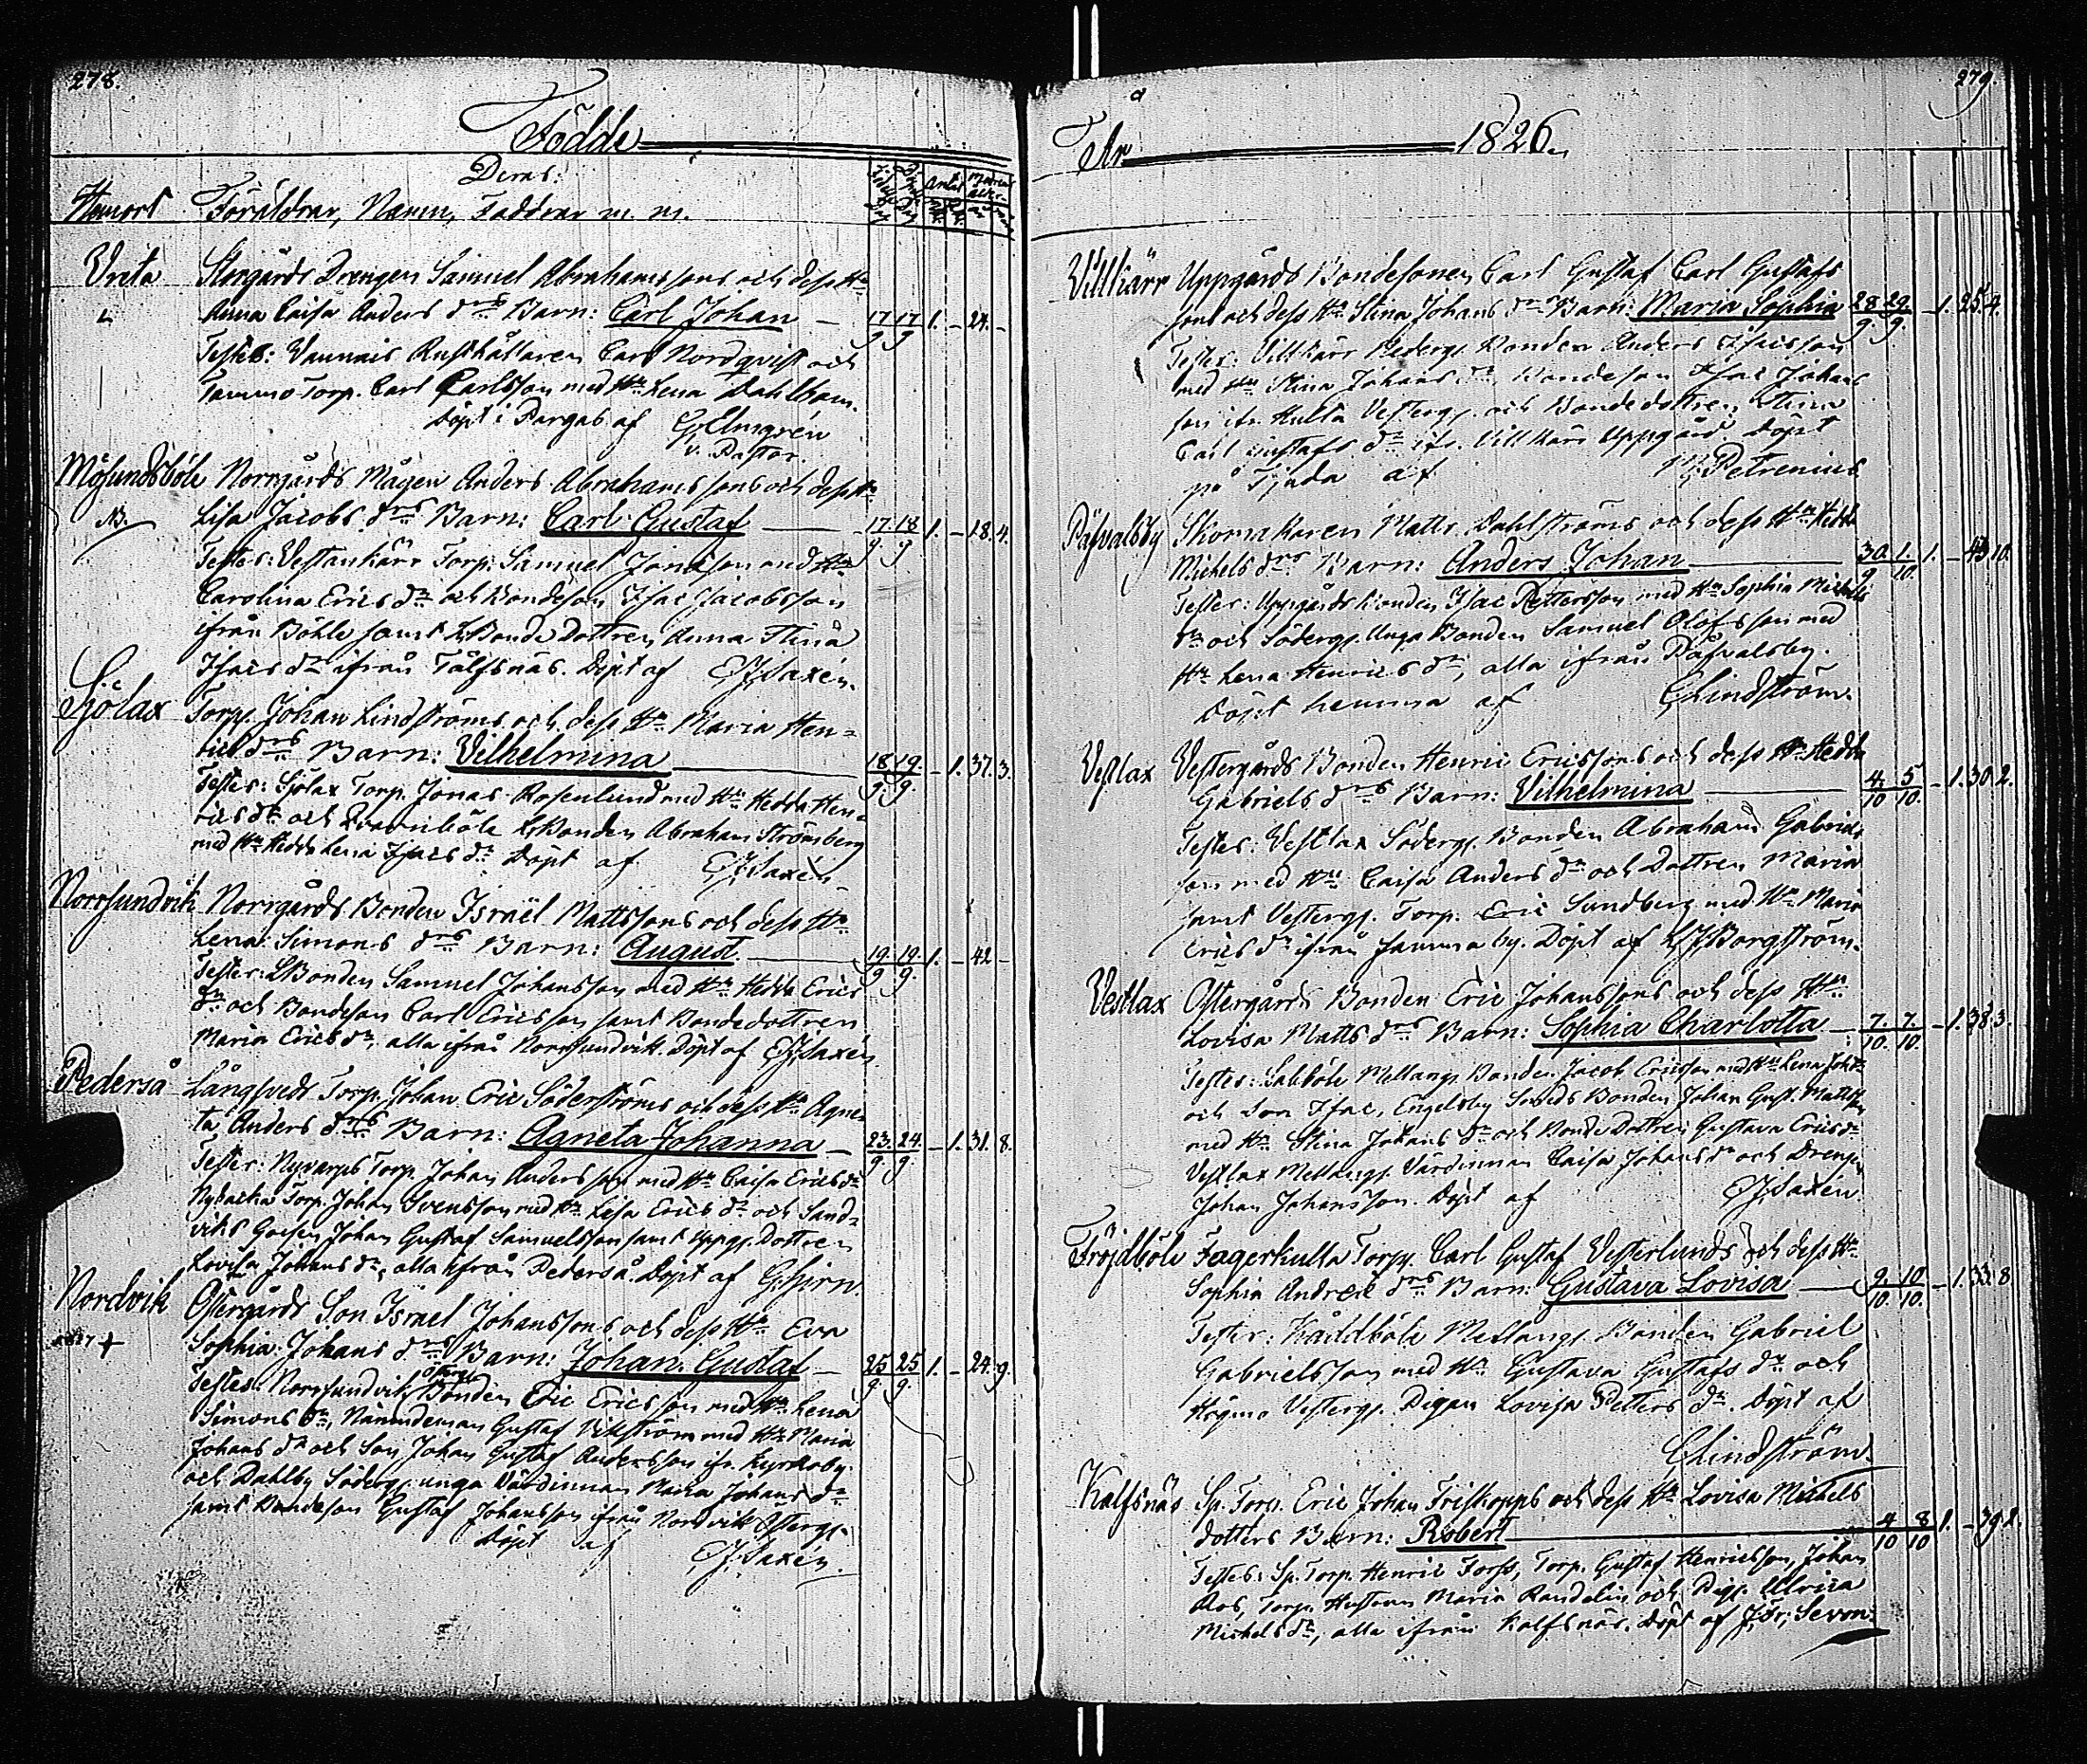 278.
Födde
Deras:
Hemort Föräldrar, Namn, Faddrar m. m.
Vreta Storgårds Drengen Samuel Abrahamssons och dess Hu
Anna Caisa Anders drs Barn: Carl Johan — 17/9 17/9 1. – 24. –
Testes: Vannais Rusthållaren Carl Nordqvist och
Tammo Torp. Carl Carlsson med Hu Lena Dahlbom.
Döpt i Pargas af G Elmgren
v. Pastor.
Mösundsböle Norrgårds Mågen Anders Abrahamssons och dess Hu
NB. Lisa Jacobs drs Barn: Carl Gustaf — 17/9 18/9 1. – 18. 4.
Testes: Vestankärr Torp. Samuel Jonasson med Hu
Carolina Erics dr och Bondeson Isac Jacobsson
ifrån Böhle samt LBonde Dottren Anna Stina
Isacs dr ifrån Tälfsnäs. Döpt af CJSaxén.
Sjölax Torp. Johan Lindströms och dess Hu Maria Hen=
rics drs Barn: Vilhelmina — 18/9 19/9 – 1. 37. 3.
Testes: Sjölax Torp. Jonas Rosenlund med Hu Hedda Hen=
rics dr och LBonden Abraham Strömberg
med Hu Hedda Lena Isacs dr Döpt af CJSaxén
Norrsundvik Norrgårds Bonden Israël Mattssons och dess Hu
Lena Simons drs Barn: August — 19/9 19/9 1. – 42 –
Testes: LBonden Samuel Johansson med Hu Hedda Erics
dr och Bondeson Carl Ericsson samt Bondedottren
Maria Erics dr, alla ifrån Norrsundvik. Döpt af CJSaxén
Pederså Långsveds Torp. Johan Eric Söderströms och dess Hu Agne=
ta Anders drs Barn: Agneta Johanna — 23/9 24/9 – 1. 31. 8.
Testes: Nyvarps Torp. Johan Andersson med Hu Caisa Erics dr
Nybacka Torp. Johan Svensson med Hu Lisa Erics dr och Sand=
viks Gossen Johan Gustaf Samuelsson samt Uppg. Dottren
Lovisa Johans dr, alla ifrån Pederså. Döpt af
Nordvik Östergårds Son Israel Johanssons och dess Hu Eva
+ Sophia Johans drs Barn: Johan Gustaf — 25/9 25/9 1. – 24. 9.
Österg.
Testes: Norrsundvik Bonden Eric Ericsson med Hu Lena
Simons dr, Nämndeman Gustaf Vikström med Hu Maria
Johans dr och Son Johan Gustaf Andersson ifr. Kyrkoby
och Dahlby Söderg. unga Värdinnan Maria Johans dr
samt Bondeson Gustaf Johansson ifrån Nordvik Österg.
Döpt af CJSaxén.
279.
År 1826
Villkärr Uppgårds Bondesonen Carl Gustaf Carl Gustafs
sons och dess Hu Stina Johans drs Barn: Maria Sophia 28/9 29/9 – 1. 25. 4.
Testes: Villkärr Nederg. Bonden Anders Isacsson
med Hu Stina Johans dr, Bondeson Isac Johans
son ifr. Hulta Vesterg. och Bondedottren Stina
Carl Gustafs dr ifr. Villkärr Uppgård. Döpt
på Tjuda af Petrenius
Påfvalsby Skomakaren Matts Dahlströms och dess Hu Hedda
Michels drs Barn: Anders Johan — 30/9 1/10 1. – 43. 10.
Testes: Uppgårds Bonden Isac Pettersson med Hu Sophia Michels
dr och Söderg. Unga Bonden Samuel Olofsson med
Hu Lena Henrics dr, alla ifrån Påfvalsby.
Döpt hemma af CLindström.
Vestlax Vestergårds Bonden Henric Ericssons och dess Hu Hedda
Gabriels drs Barn: Vilhelmina — 4/10 5/10 – 1. 30. 2.
Testes: Vestlax Söderg. Bonden Abraham Gabriels
son med Hu Caisa Anders dr och Dottren Maria
samt Vesterg. Torp. Eric Sundberg med Hu Maria
Erics dr ifrån samma by. Döpt af Borgström.
Vestlax Östergårds Bonden Eric Johanssons och dess Hu
Lovisa Matts drs Barn: Sophia Charlotta — 7/10 7/10 – 1. 38. 3.
Testes: Mellang. Bonden Jacob Ericsson med Hu Lena Joh. dr
och Son Isac, Engelsby Smeds Bonden Johan Gust. Mattsson
med Hu Stina Johans dr och Bonde Dottren Gustava Erics dr
Vestlax Mellang. Värdinnan Caisa Johans dr och Dreng.
Johan Johansson. Döpt af CJSaxén
Fröjdböle Fagerkulla Torp. Carl Gustaf Vesterlunds och dess Hu
Sophia Anders drs Barn: Gustava Lovisa — 9/10 10/10 – 1. 33. 8
Testes: Kåddböle Mellang. Bonden Gabriel
Gabrielsson med Hu Gustava Gustafs dr och
Högmo Vesterg. Pigan Lovisa Petters dr. Döpt af
CLindström.
Kalfsnäs Sp. Torp. Eric Johan Friskopps och dess Hu Lovisa Michels
dotters Barn: Robert — 4/10 8/10 1. – 39. 2.
Testes: Sp. Torp. Henric Forss, Torp. Gustaf Henricsson, Johan
Ros, Torp. Hustrun Maria Randelin och Pig. Ulrica
Michels dr, alla ifrån Kalfsnäs. Döpt af Sevon.